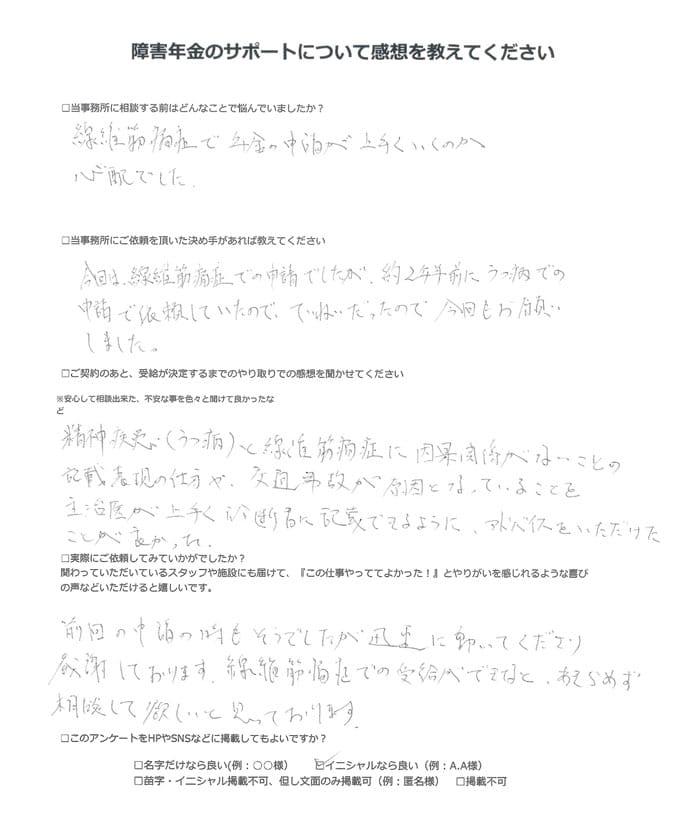 障害年金のサポートについて感想を教えてください
□当事務所に相談する前はどんなことで悩んでいましたか？
線維筋痛症で年金の申請が上手くいくのか
心配でした.
□当事務所にご依頼を頂いた決め手があれば教えてください
今回は、線維筋痛症での申請でしたが、約2年半前にうつ病での
申請で依頼していたので、ていねいだったので今回もお願い
しました。
□ご契約のあと、受給が決定するまでのやり取りでの感想を聞かせてください
※安心して相談出来た、不安な事を色々と聞けて良かったな
ど
精神疾患（うつ病）と線維筋痛症に因果関係がないことの
記載表現の仕方や、交通事故が原因となっていることを
主治医が上手く診断書に記載できるように、アドバイスをいただけた
ことが良かった.
□実際にご依頼してみていかがでしたか？
関わっていただいているスタッフや施設にも届けて、『この仕事やっててよかった！』とやりがいを感じれるような喜び
の声などいただけると嬉しいです。
前回の申請の時もそうでしたが迅速に動いてくださり
感謝しております.線維筋痛症での受給ができると、あきらめず
相談して欲しいと思っております.
□このアンケートをHPやSNSなどに掲載してもよいですか？
□名字だけなら良い(例：○○様）　☑イニシャルなら良い（例：A.A様）
□苗字・イニシャル掲載不可、但し文面のみ掲載可（例：匿名様）　□掲載不可